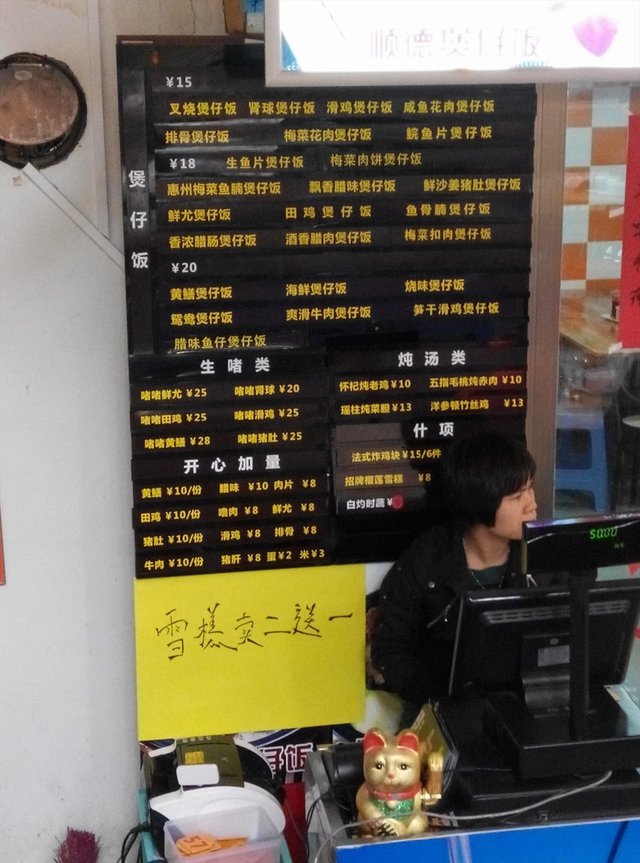 顺德煲仔饭
煲仔饭
¥15
叉烧煲仔饭 肾球煲仔饭 滑鸡煲仔饭 咸鱼花肉煲仔饭
排骨煲仔饭 梅菜花肉煲仔饭 鲩鱼片煲仔饭
¥18 生鱼片煲仔饭 梅菜肉饼煲仔饭
惠州梅菜鱼腩煲仔饭 飘香腊味煲仔饭 鲜沙姜猪肚煲仔饭
鲜尤煲仔饭 田鸡煲仔饭 鱼骨腩煲仔饭
香浓腊肠煲仔饭 酒香腊肉煲仔饭 梅菜扣肉煲仔饭
¥20
黄鳝煲仔饭 海鲜煲仔饭 烧味煲仔饭
鸳鸯煲仔饭 爽滑牛肉煲仔饭 笋干滑鸡煲仔饭
腊味鱼仔煲仔饭
生啫类
啫啫鲜尤 ¥25 啫啫肾球 ¥20
啫啫田鸡 ¥25 啫啫滑鸡 ¥25
啫啫黄鳝 ¥28 啫啫猪肚 ¥25
开心加量
黄鳝 ¥10/份 腊味 ¥10 肉片 ¥8
田鸡 ¥10/份 噜肉 ¥8 鲜尤 ¥8
猪肚 ¥10/份 滑鸡 ¥8 排骨 ¥8
牛肉 ¥10/份 猪肝 ¥8 蛋¥2 米¥3
炖汤类
怀杞炖老鸡 ¥10 五指毛桃炖赤肉 ¥10
瑶柱炖菜胆 ¥13 洋参顿竹丝鸡 ¥13
什项
法式炸鸡块 ¥15/6件
招牌榴莲雪糕 ¥8
白灼时蔬 ¥
雪糕卖二送一
50.00
仔饭